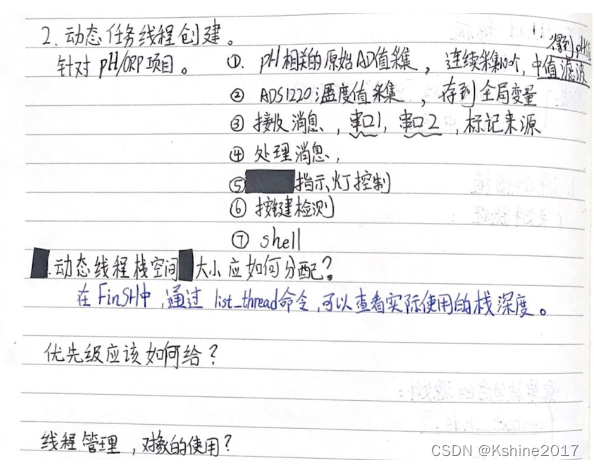 2. 动态任务线程创建。
针对 pH/ORP 项目。 ①. pH相关的原始AD值采集，连续采集10个，中值滤波
得到pH值
② ADS1220温度值采集，存到全局变量
③ 接收消息，串口1，串口2，标记来源
④ 处理消息，
⑤ 指示灯控制
⑥ 按键检测
⑦ shell
.动态线程栈空间 大小应如何分配？
在FinSH中，通过 list_thread命令，可以查看实际使用的栈深度。
优先级应该如何给？
线程管理，对象的使用？
CSDN @Kshine2017